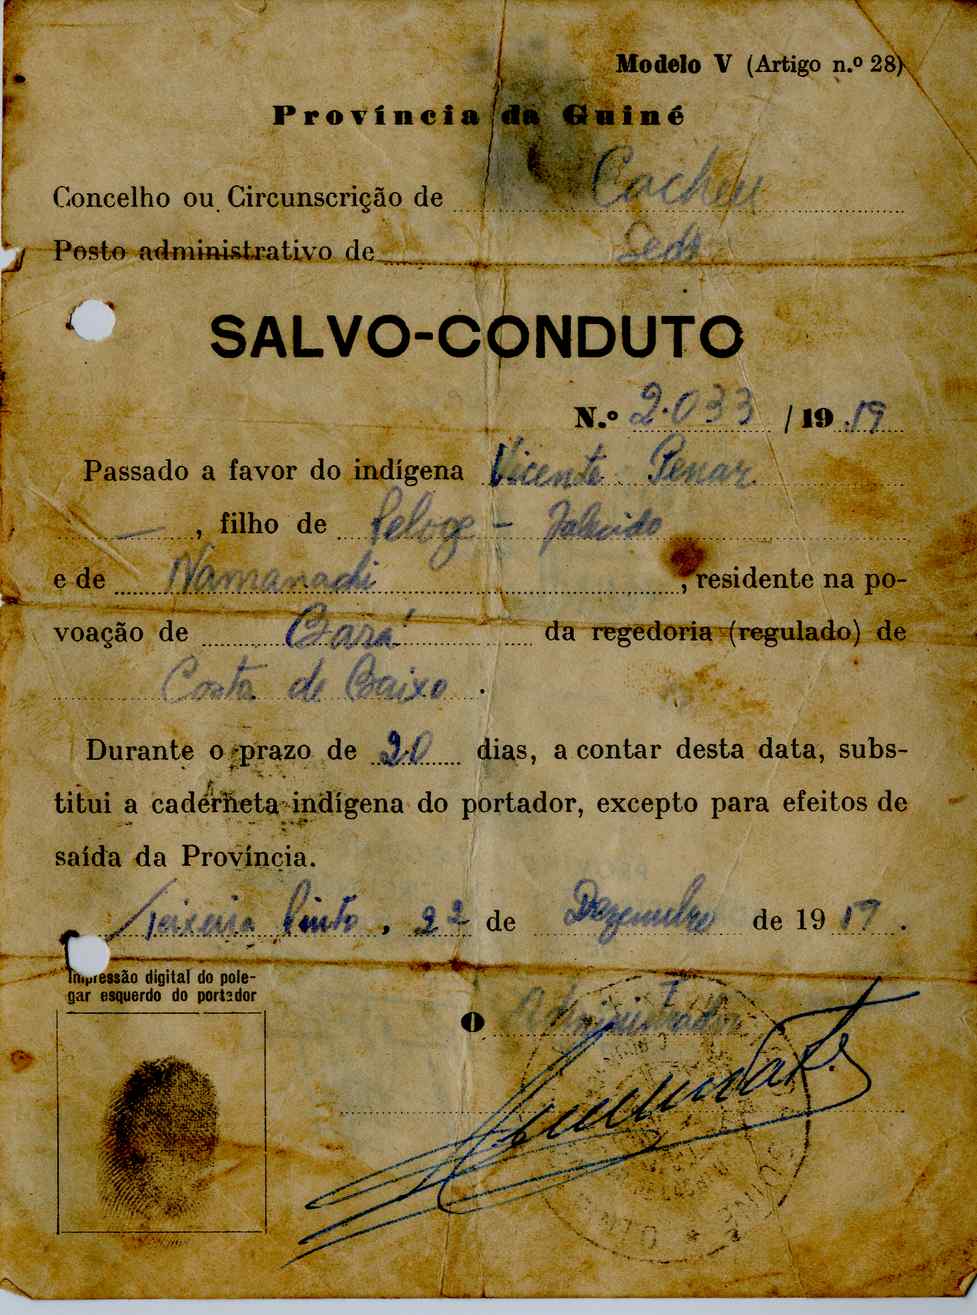 Modelo V (Artigo n.º 28)
Província da Guiné
Concelho ou Circunscrição de Cacheu
Posto administrativo de Sede
SALVO-CONDUTO
N.º 2.033 /19
Passado a favor do indígena Vicente Penar
, filho de
e de Namanadi , residente na po-
voação de Bará da regedoria (regulado) de
Costa de Baixo .
Durante o prazo de 20 dias, a contar desta data, subs-
titui a caderneta indígena do portador, excepto para efeitos de
saída da Província.
Teixeira Pinto, 22 de Dezembro de 19
Impressão digital do pole-
gar esquerdo do portador
O Administrador